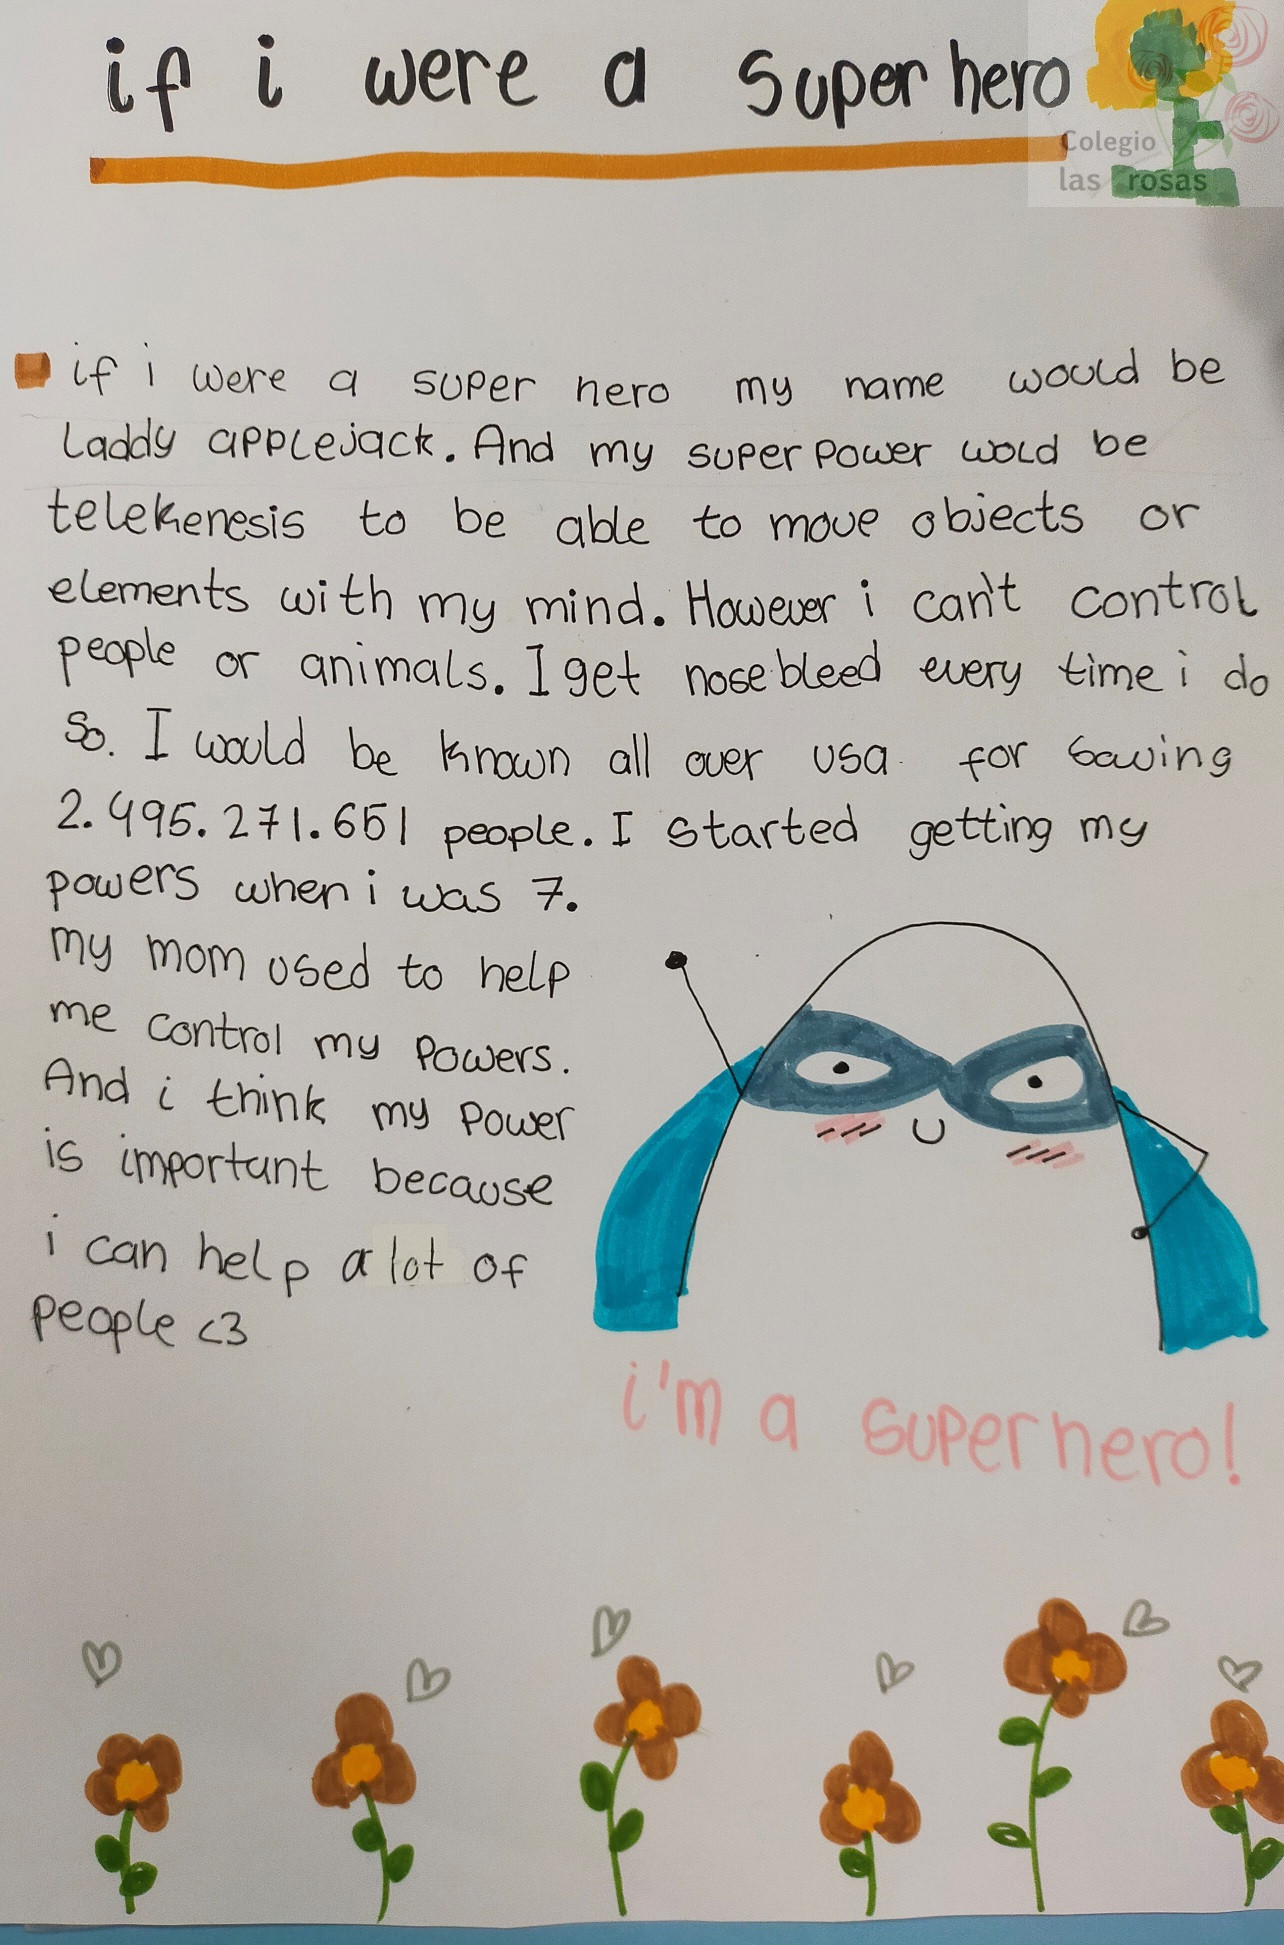 if i were a super hero
Colegio
las rosas
if i were a super hero my name would be
Laddy applejack. And my superpower wold be
telekenesis to be able to move objects or
elements with my mind. However i can't control
people or animals. I get nosebleed every time i do
so. I would be known all over usa for saving
2.495.271.651 people. I started getting my
powers when i was 7.
my mom used to help
me control my powers.
And i think my power
is important because
i can help a lot of
people <3
i'm a superhero!